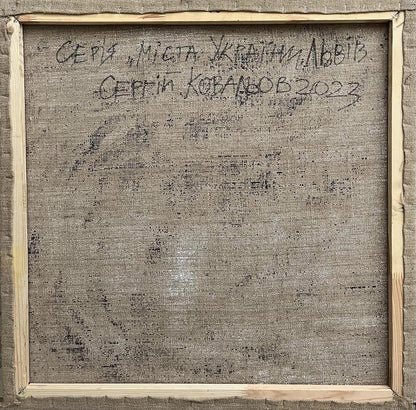 СЕРІЯ „МІСТА УКРАЇНИ„ ЛЬВІВ
СЕРГІЙ КОВАЛЬОВ 2023